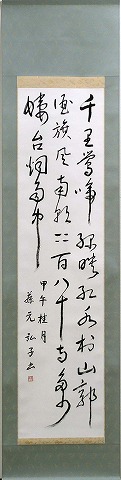 千里鶯啼緑映紅水村山郭
酒旗風南朝四百八十寺多少
楼台烟雨中
甲午桂月
蘇元弘子書